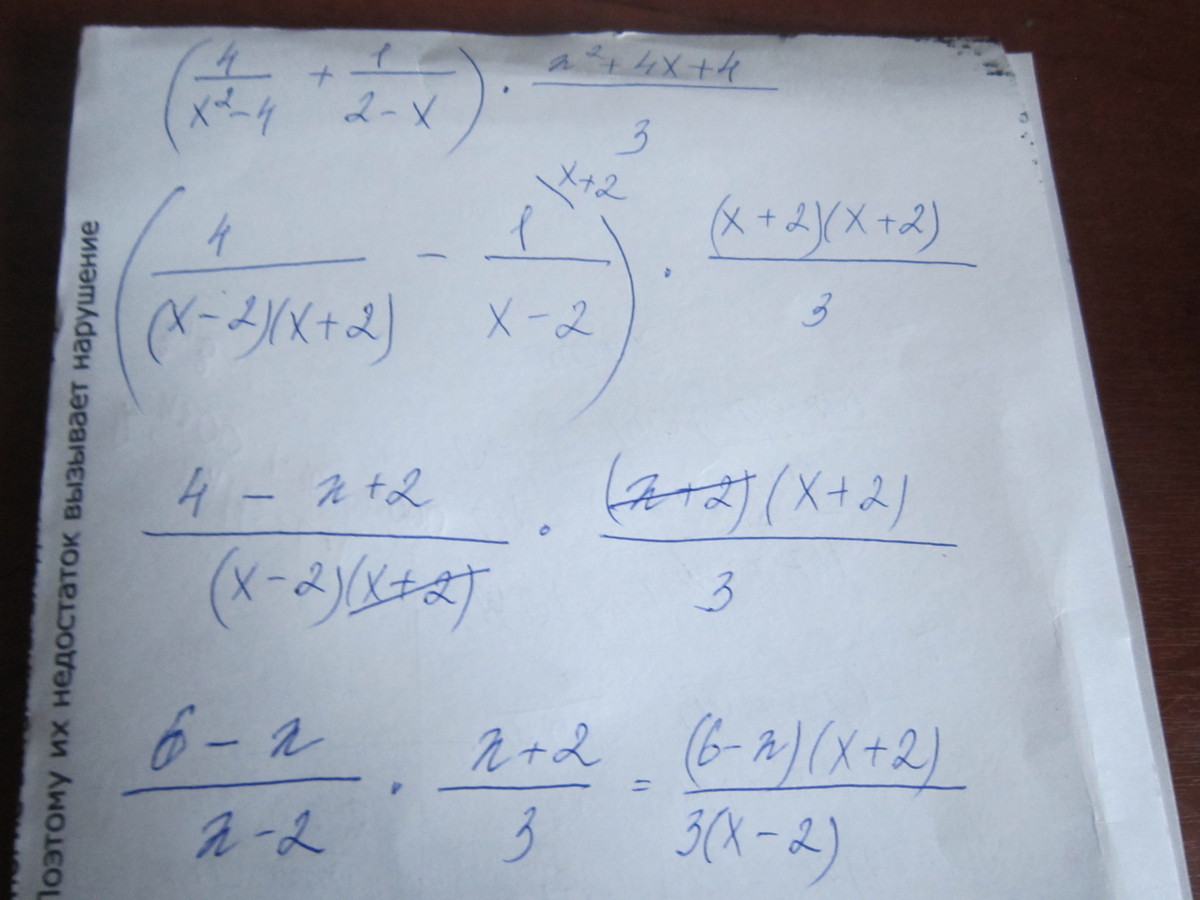 (4/(x²-4) + 1/(2-x)) · (x²+4x+4)/3
(4/((x-2)(x+2)) - 1/(x-2) \x+2) · ((x+2)(x+2))/3
(4 - x+2)/((x-2)(x+2)) · ((x+2)(x+2))/3
(6-x)/(x-2) · (x+2)/3 = ((6-x)(x+2))/(3(x-2))
Поэтому их недостаток вызывает нарушение